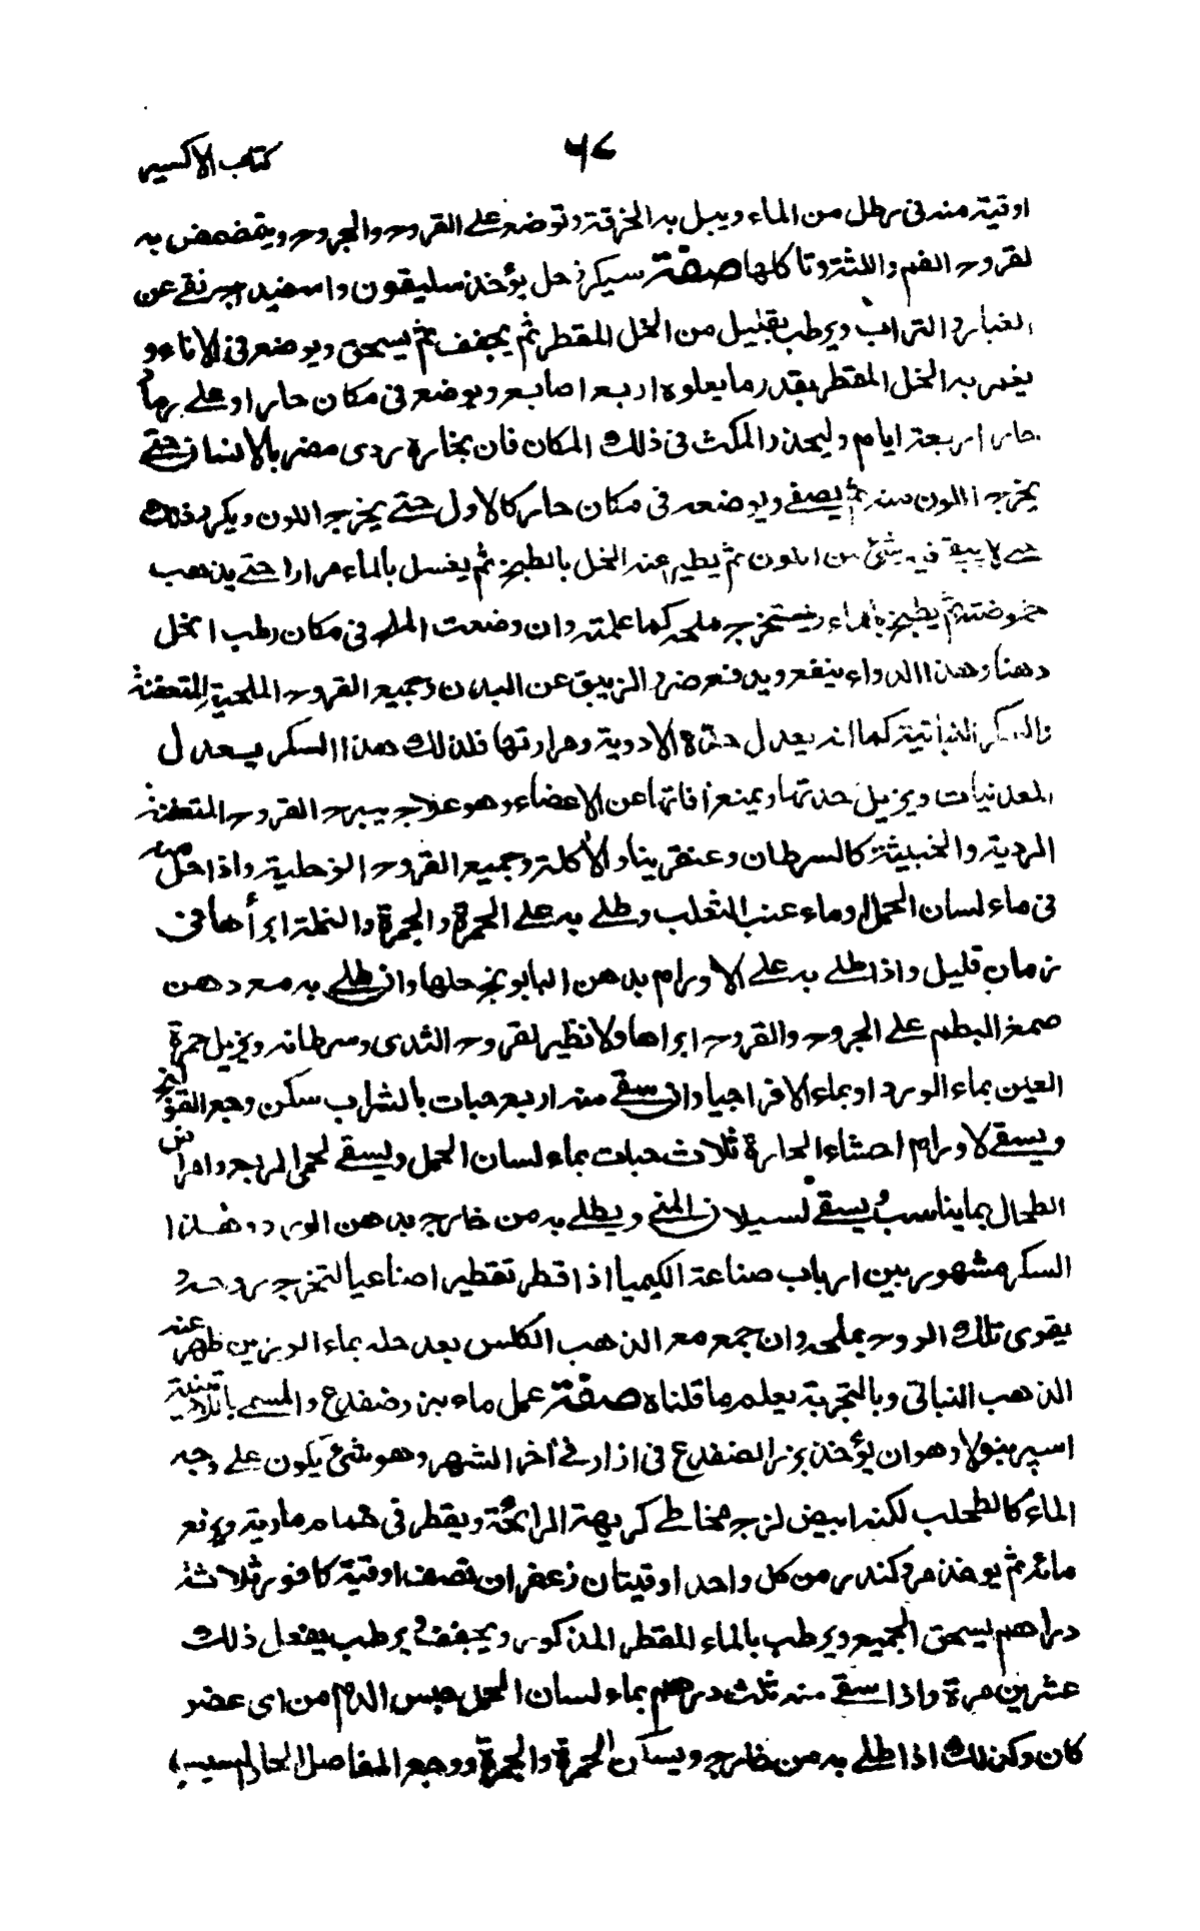 ٦٧
كتاب الاكسير
اوقية منه فى رطل من الماء ويبل به الخرقة وتوضع على القروح والجروح ويتمضمض به
لقروح الفم واللثة وتاكلها صفة سيكر زحل يؤخذ سليقون واسفيداج نقى عن
الغبار والتراب ويرطب بقليل من الخل المقطر ثم يجفف ثم يسحق ويوضع فى الاناء و
يغمر به الخل المقطر بقدر ما يعلوه اربع اصابع ويوضع فى مكان حار او على رماد
حار اربعة ايام وليحذر المكث فى ذلك المكان فان بخاره ردى مضر بالانسان حتى
يخرج اللون منه ثم يصفى ويوضعه فى مكان حار كالاول حتى يخرج اللون ويكرر ذلك
حتى لا يبقى فيه شئ من اللون ثم يطير عنه الخل بالطبخ ثم يغسل بالماء مرارا حتى يذهب
حموضته ثم يطبخ بالماء ويستخرج ملحه كما علمته وان وضعت الملح فى مكان رطب انحل
دهنا وهذا الدواء ينفع ويدفع ضرر الزيبق عن البدن وجميع القروح الملحية المتعفنة
والسكر النباتية كما انه يعدل حدة الادوية وحرارتها فلذلك هذا السكر يعدل
المعدنيات ويزيل حدتها ويمنع افاتها عن الاعضاء وهو علاج يبرء القروح المتعفنة
الردية والخبيثة كالسرطان وعنقرينا والاكلة وجميع القروح الزحلية واذا حل منه
فى ماء لسان الحمل او ماء عنب الثعلب وطلى به على الحمرة والجمرة والنملة ابرأها فى
زمان قليل واذا طلى به على الاورام بدهن البابونج حللها وان طلى به مع دهن
صمغ البطم على الجروح والقروح ابراها ولا نظير لقروح الثدى وسرطانه ويزيل حمرة
العين بماء الورد او بماء الافراجيا وان سقى منه اربع حبات بالشراب سكن وجع القولنج
ويسقى لاورام احشاء الحارة ثلاث حبات بماء لسان الحمل ويسقى لحمى الربع وامراض
الطحال بما يناسب ويسقى لسيلان المنى ويطلى به من خارج بدهن الورد وهذا
السكر مشهور بين ارباب صناعة الكيميا اذا قطر تقطيرا صناعيا لتخرج روحه و
يقوى تلك الروح بملحه وان جمع مع الذهب الكلس بعد حله بماء الرزين ظهر عنه
الذهب النباتى وبالتجربة يعلم ما قلناه صفة عمل ماء بزر ضفدع والمسمى باللاتينية
اسپرنيولا وهو ان يؤخذ بزر الضفدع فى اذار فى أخر الشهر وهو شئ يكون على وجه
الماء كالطحلب لكنه ابيض لزج مخاطى كريهة الرائحة ويقطر فى حمام مارية ويرفع
مائه ثم يوخذ مر وكندر من كل واحد اوقيتان زعفران نصف اوقية كافور ثلاثة
دراهم يسحق الجميع ويرطب بالماء المقطر المذكور ويجفف ويرطب يفعل ذلك
عشرين مرة واذا سقى منه ثلث درهم بماء لسان الحمل حبس الدم من اى عضو
كان وكذلك اذا طلى به من خارج ويسكن الحمرة والجمرة ووجع المفاصل الحار